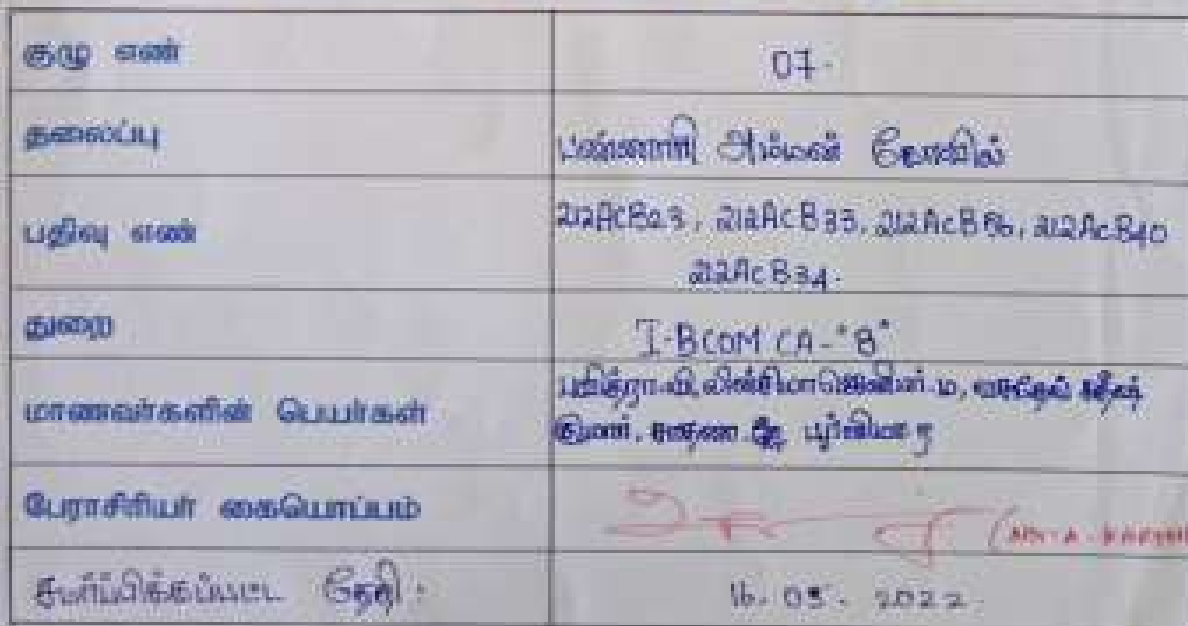 குழு எண்
07.
தலைப்பு
பண்ணாரி அம்மன் கோவில்
பதிவு எண்
212ACB23, 212ACB33, 212ACB56, 212ACB40
212ACB34.
துறை
I-BCOM CA-"B"
மாணவர்களின் பெயர்கள்
பவித்ரா.வி,
பூர்ணிமா
பேராசிரியர் கையொப்பம்
சமர்ப்பிக்கப்பட்ட தேதி:
16.05.2022.